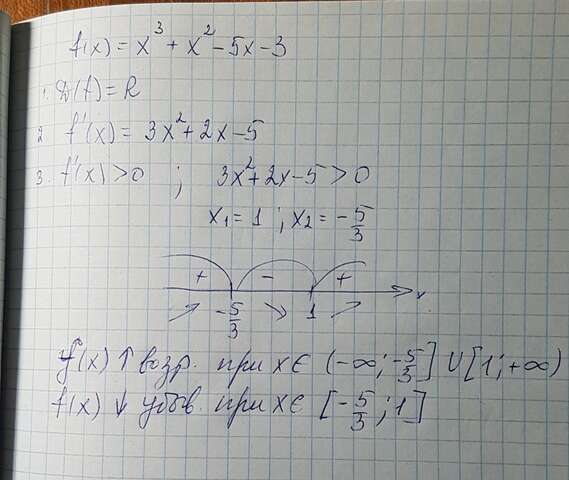 f(x) = x³ + x² - 5x - 3
1. D(f) = R
2. f'(x) = 3x² + 2x - 5
3. f'(x) > 0 ; 3x² + 2x - 5 > 0
x₁ = 1 ; x₂ = -5/3
+ - +
↗ -5/3 ↘ 1 ↗ x
f(x) ↑ возр. при x ∈ (-∞; -5/3] ∪ [1; +∞)
f(x) ↓ убыв. при x ∈ [-5/3; 1]